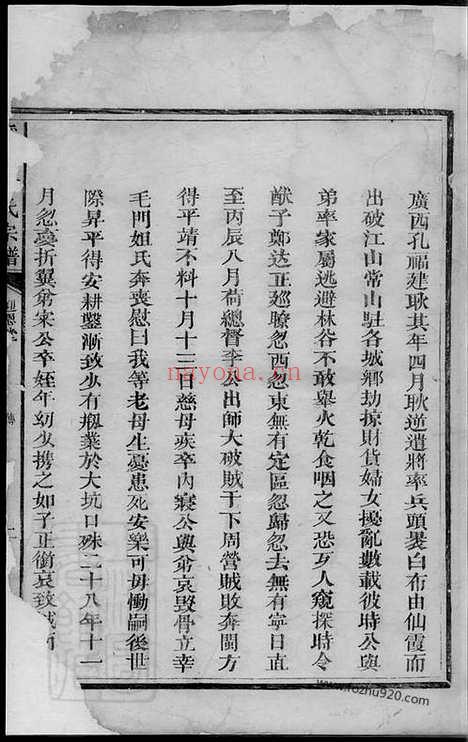 廣西孔福建耿其年四月耿逆遣將率兵頭裹白布由仙霞而
出破江山常山駐各城鄉劫掠財貨婦女擾亂數載彼時公與
弟率家屬逃避林谷不敢舉火乾食咽之又恐歹人窺探時令
猷子鄭达正廵瞭忽西忽東無有定區忽歸忽去無有寧日直
至丙辰八月荷總督李公出師大破賊于下周營賊敗奔閩方
得平靖不料十月十三日慈母疾卒內寢公與弟哀毀骨立幸
毛門姐氏奔喪慰曰我等老母生憂患死安樂可毋慟嗣後世
際昇平得安耕鑿漸致少有掙業於大坑口殊二十八年十一
月忽憂折翼弟宋公卒姪年幼少携之如子正衡哀致
氏宗譜
傳
nayona.cn
www.fozhu920.com